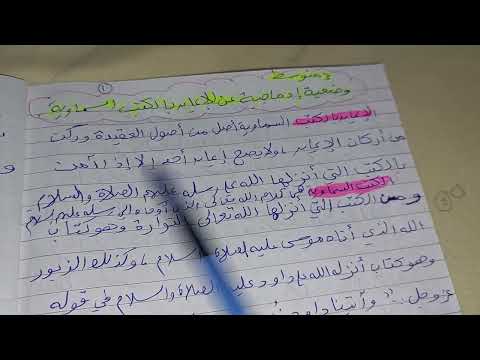 3 متوسط
①
وضعية إدماجية عن الإيمان بالكتب السماوية
الإيمان بالكتب السماوية أصل من أصول العقيدة وركن
من أركان الإيمان، ولا يصح إيمان أحد إلا إذا آمن
بالكتب التي أنزلها الله على رسله عليهم الصلاة والسلام
الكتب السماوية هي كلام الله تعالى الذي أوحاه إلى رسله عليهم السلام
ومن الكتب التي أنزلها الله تعالى التوراة وهو كتاب
الله الذي أتاه موسى عليه الصلاة والسلام، وكذلك الزبور
وهو كتاب أنزله الله على داود عليه الصلاة والسلام في قوله
عز وجل: " وآتينا داود